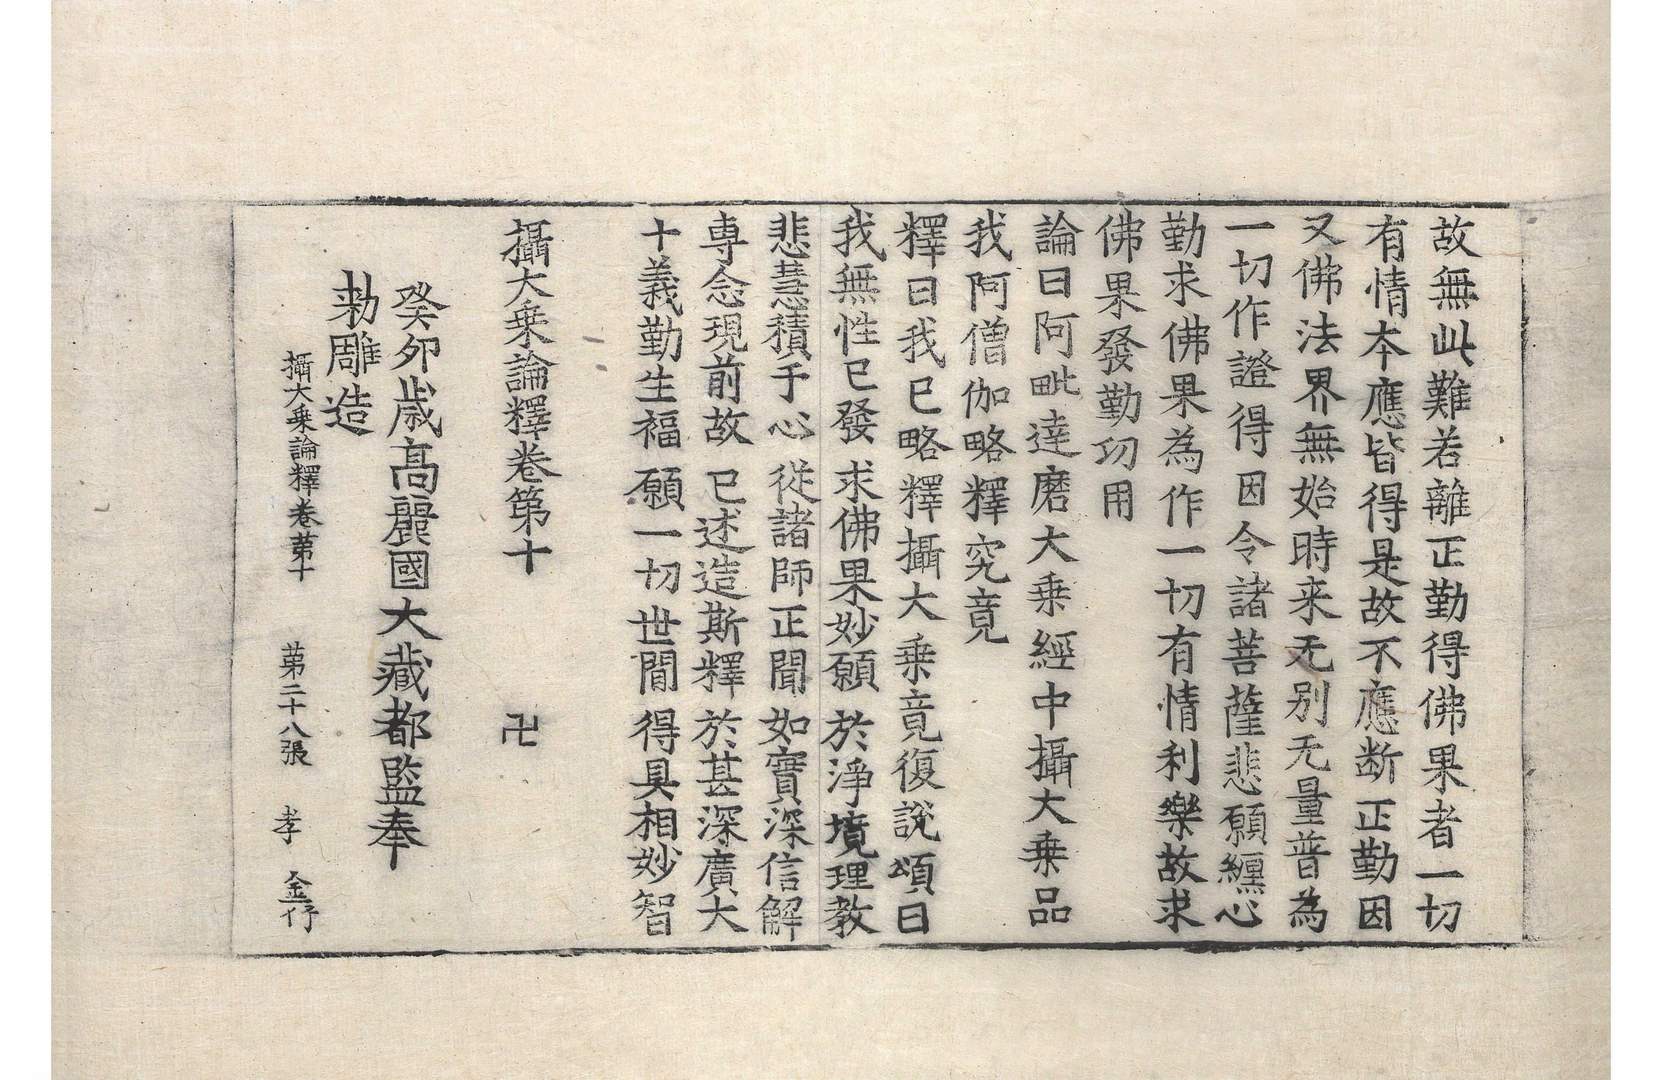 故無此難若離正勤得佛果者一切
有情本應皆得是故不應断正勤因
又佛法界無始時来无别无量普為
一切作證得因令諸菩薩悲願纏心
勤求佛果為作一切有情利樂故求
佛果發勤功用
論曰阿毗達磨大乗經中攝大乗品
我阿僧伽略釋究竟
釋曰我已略釋攝大乗竟復說頌曰
我無性已發 求佛果妙願 於淨境理教
悲慧積于心 從諸師正聞 如實深信解
専念現前故 已述造斯釋 於甚深廣大
十義勤生福 願一切世間 得具相妙智
攝大乗論釋卷第十 卍
癸卯歳髙麗國大藏都監奉
勑雕造
攝大乗論釋卷第十 第二十八張 孝 金